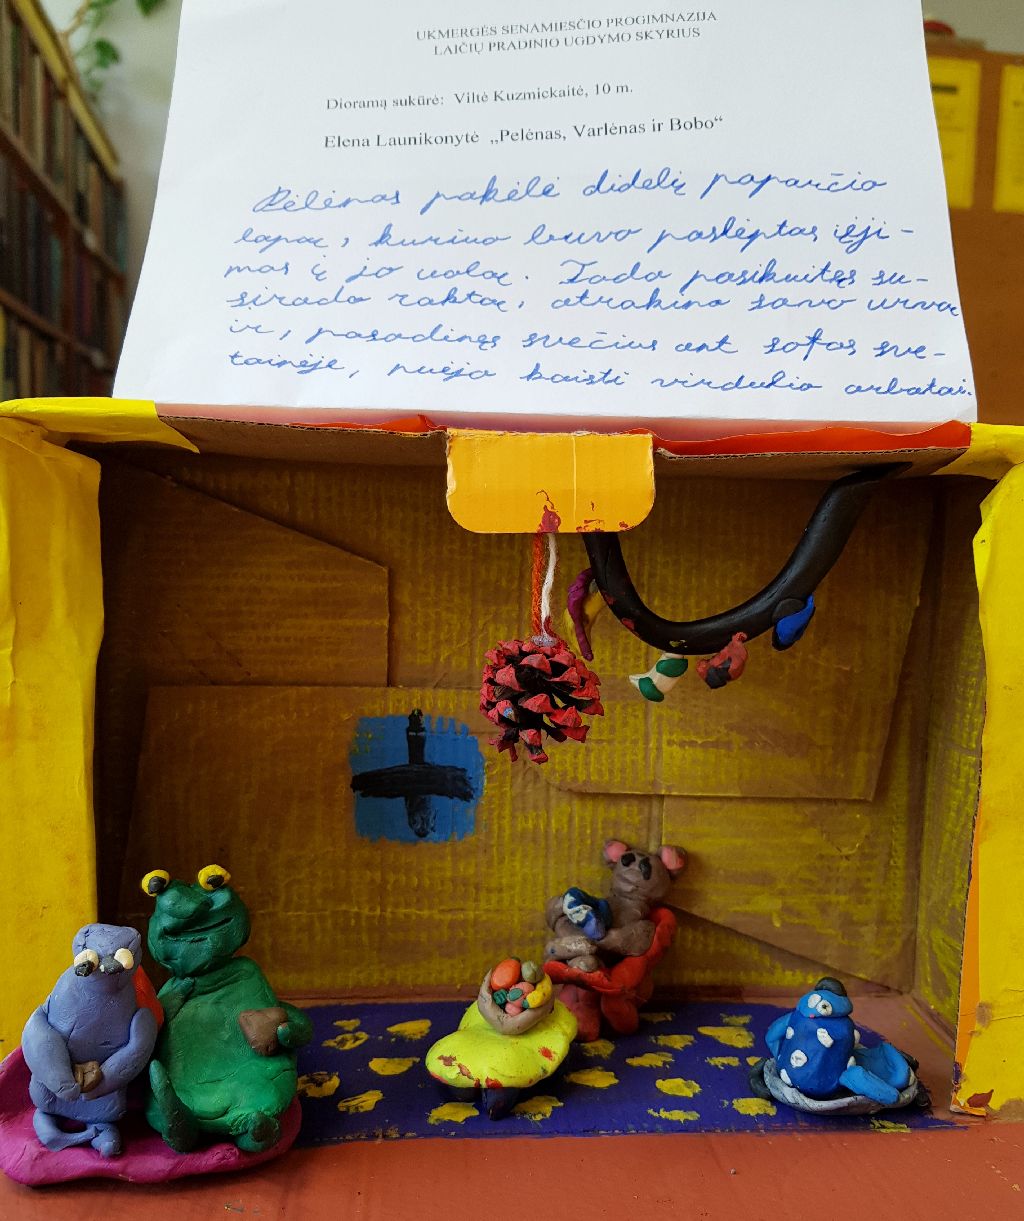 UKMERGĖS SENAMIESČIO PROGIMNAZIJA
LAIČIŲ PRADINIO UGDYMO SKYRIUS
Dioramą sukūrė: Viltė Kuzmickaitė, 10 m.
Elena Launikonytė „Pelėnas, Varlėnas ir Bobo“
Pelėnas pakėlė didelį paparčio
lapą, kuriuo buvo paslėptas įėji-
mas į jo uolą. Tada pasikuitęs su-
sirado raktą, atrakino savo urvą
ir, pasodinęs svečius ant sofos sve-
tainėje, nuėjo kaisti virdulio arbatai.